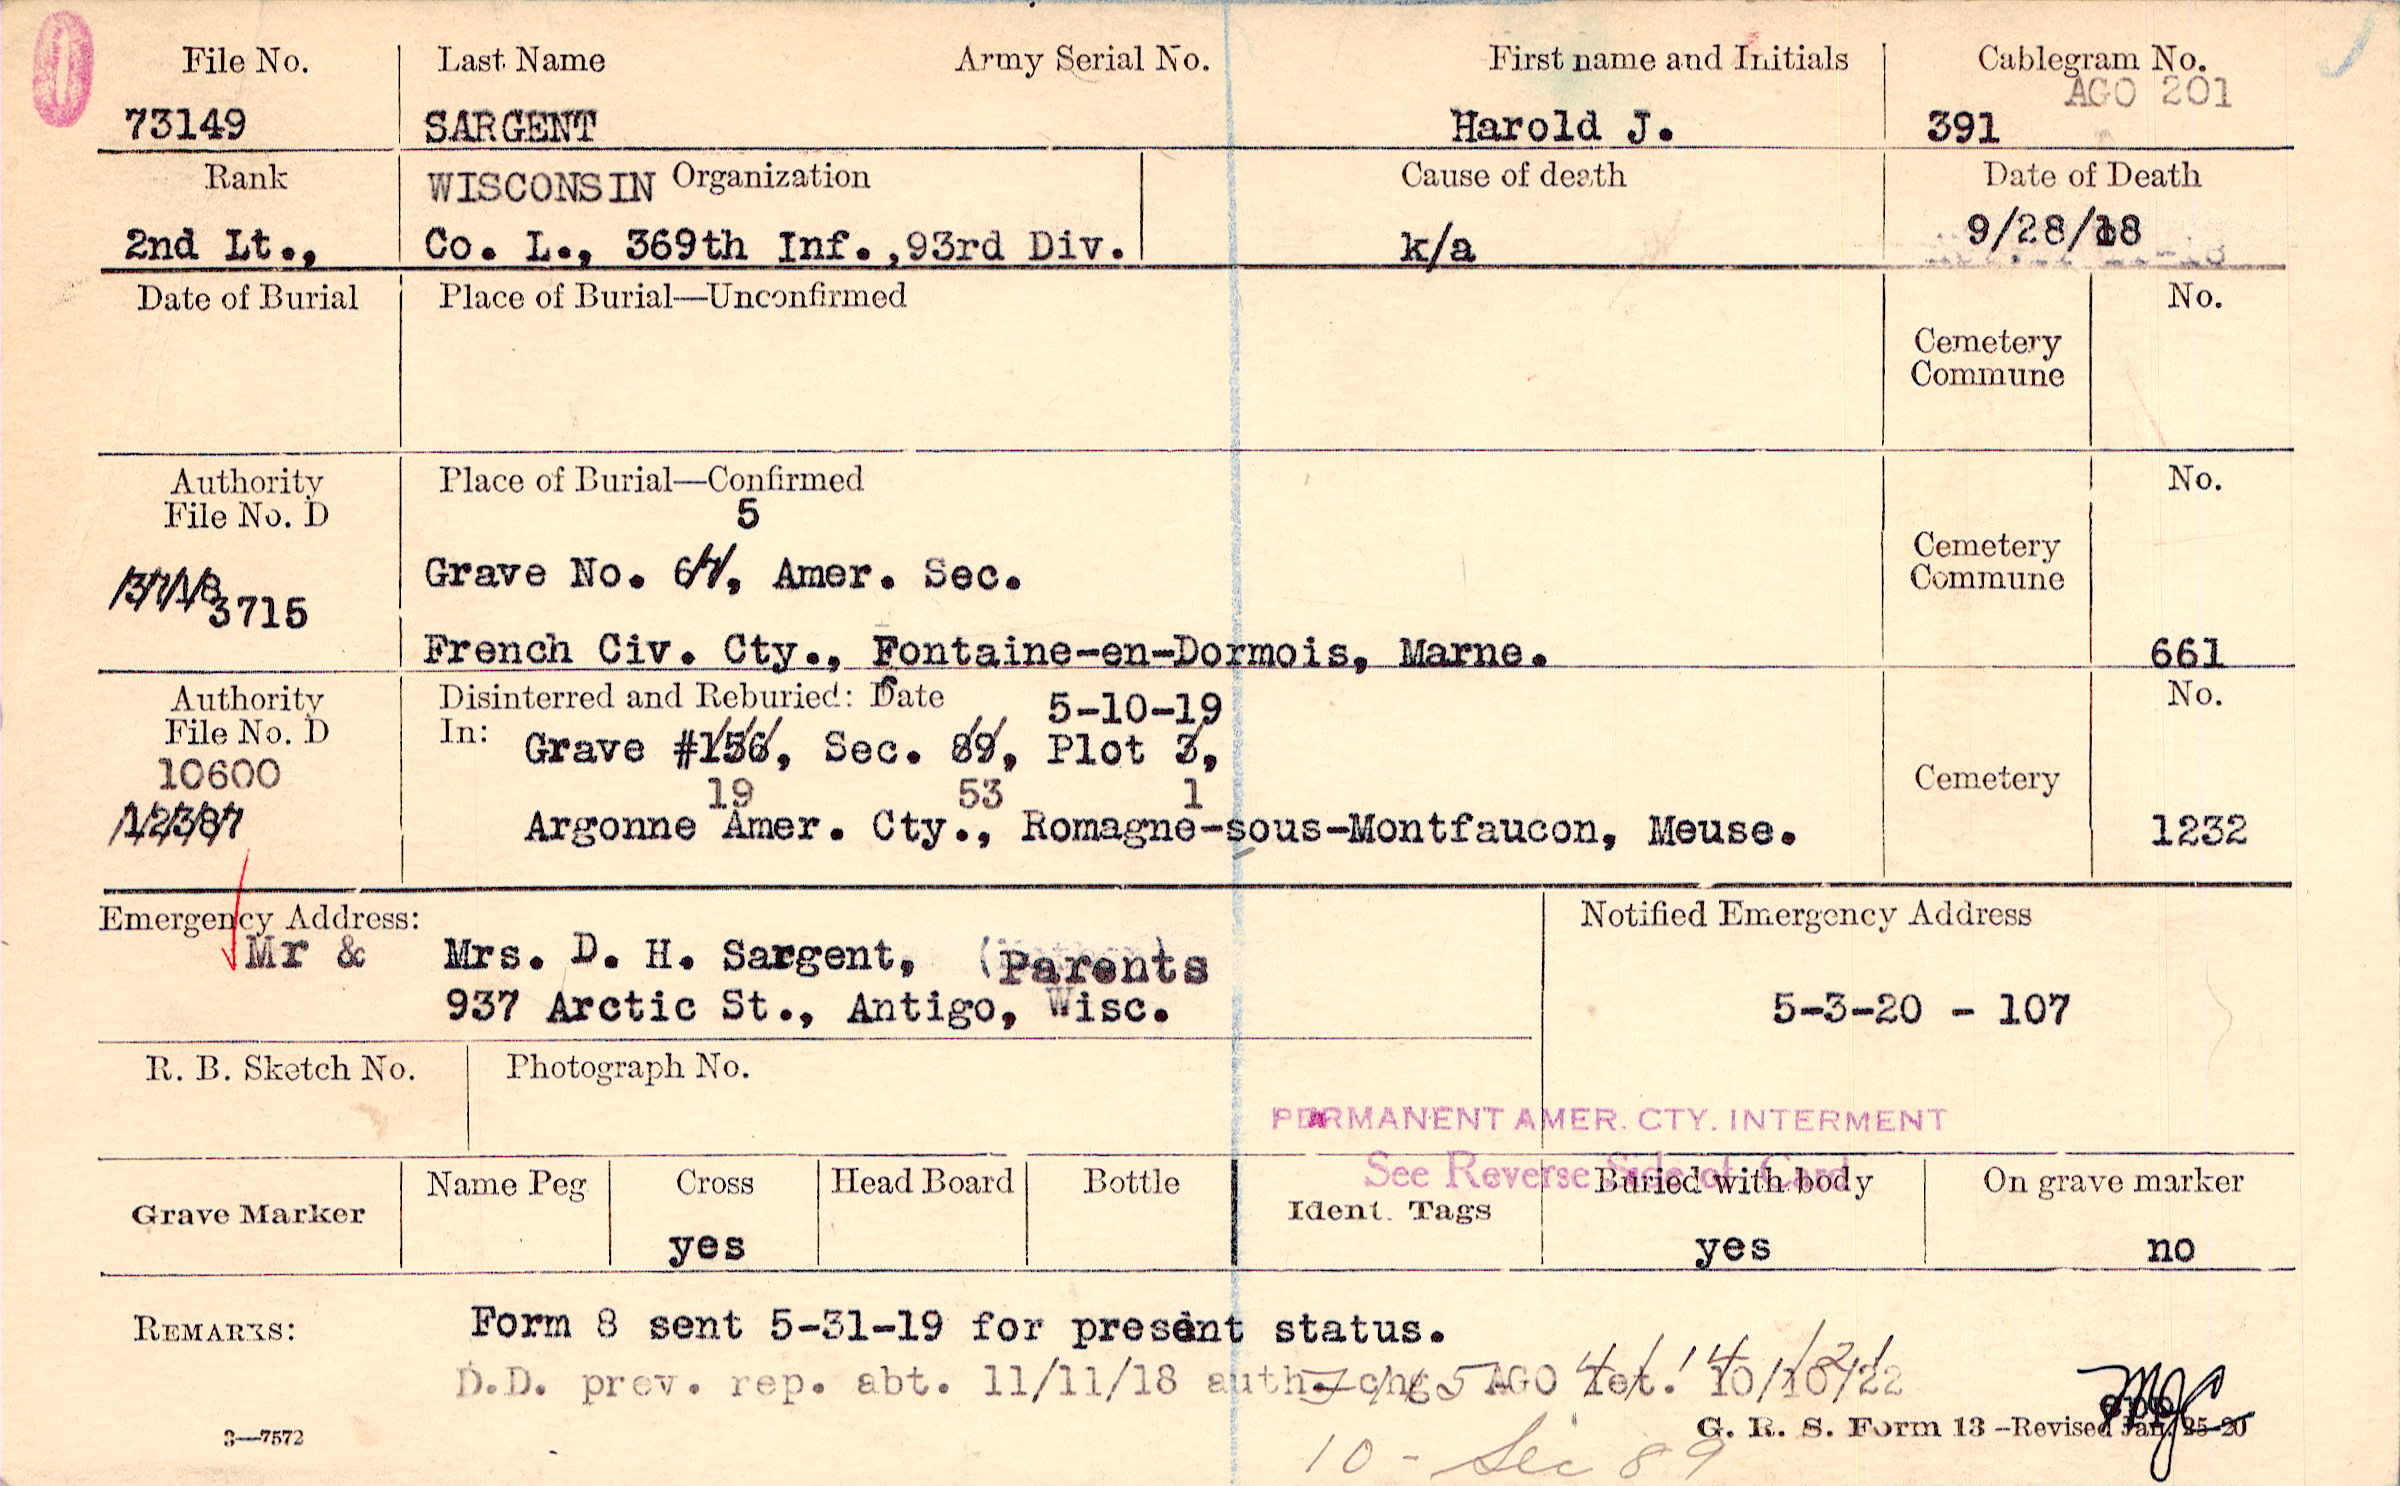 File No. Last Name Army Serial No. First name and Initials Cablegram No.
AGO 201
73149 SARGENT Harold J. 391
Rank WISCONSIN Organization Cause of death Date of Death
2nd Lt., Co. L., 369th Inf.,93rd Div. k/a 9/28/18
Date of Burial Place of Burial—Unconfirmed No.
Cemetery
Commune
Authority Place of Burial—Confirmed No.
File No. D 5
Cemetery
Grave No. 64, Amer. Sec. Commune
3715
French Civ. Cty., Fontaine-en-Dormois, Marne. 661
Authority Disinterred and Reburied: Date 5-10-19 No.
File No. D In: Grave #156, Sec. 89, Plot 3,
10600 19 53 1 Cemetery
12387 Argonne Amer. Cty., Romagne-sous-Montfaucon, Meuse. 1232
Emergency Address: Notified Emergency Address
Mr & Mrs. D. H. Sargent, (Parents
937 Arctic St., Antigo, Wisc. 5-3-20 - 107
R. B. Sketch No. Photograph No.
PERMANENT AMER. CTY. INTERMENT
See Reverse Side of Card
Grave Marker Name Peg Cross Head Board Bottle Ident. Tags Buried with body On grave marker
yes yes no
REMARKS: Form 8 sent 5-31-19 for present status.
D.D. prev. rep. abt. 11/11/18 auth. chg AGO let. 10/10/22
10 - Sec 89
3—7572 G. R. S. Form 13—Revised Jan. 25-20